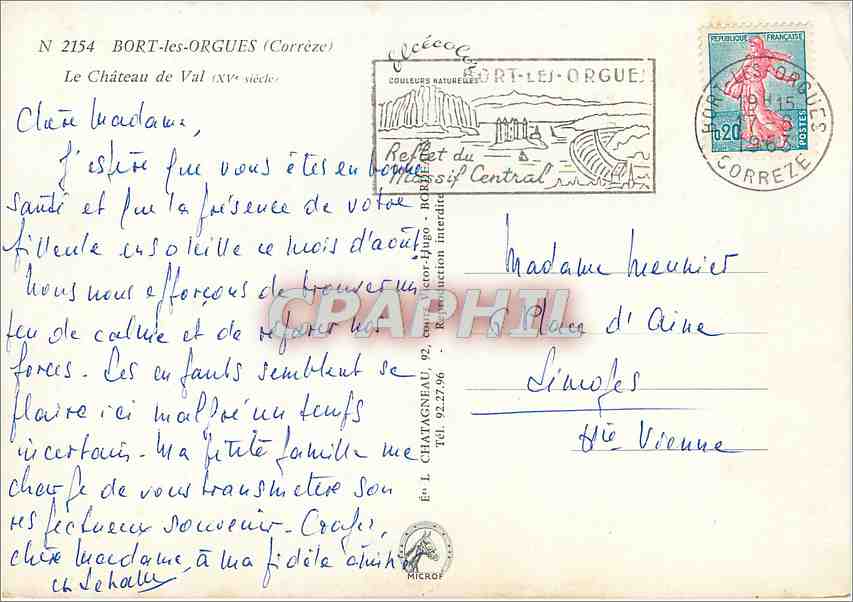 N 2154 BORT-les-ORGUES (Corrèze)
Le Château de Val (XVe siècle)
Chère Madame,
J'espère que vous êtes en bonne
santé et que la présence de votre
filleule ensoleille ce mois d'août.
Nous nous efforçons de trouver un
peu de calme et de refaire nos
forces. Les enfants semblent se
plaire ici malgré un temps
incertain. Ma petite famille me
charge de vous transmettre son
respectueux souvenir. Croyez,
chère Madame, à ma fidèle amitié
COULEURS NATURELLES
BORT-LES-ORGUES
Reflet du
Massif Central
REPUBLIQUE FRANÇAISE
0,20
POSTES
BORT-LES-ORGUES
19H15
17-8
1963
CORREZE
Madame Meunier
6 Place d'Aine
Limoges
Hte Vienne
Én L. CHATAGNEAU, 92, cours Victor-Hugo - BORDEAUX
Tél. 92.27.96 - Reproduction interdite
MICROF
CPAPHIL